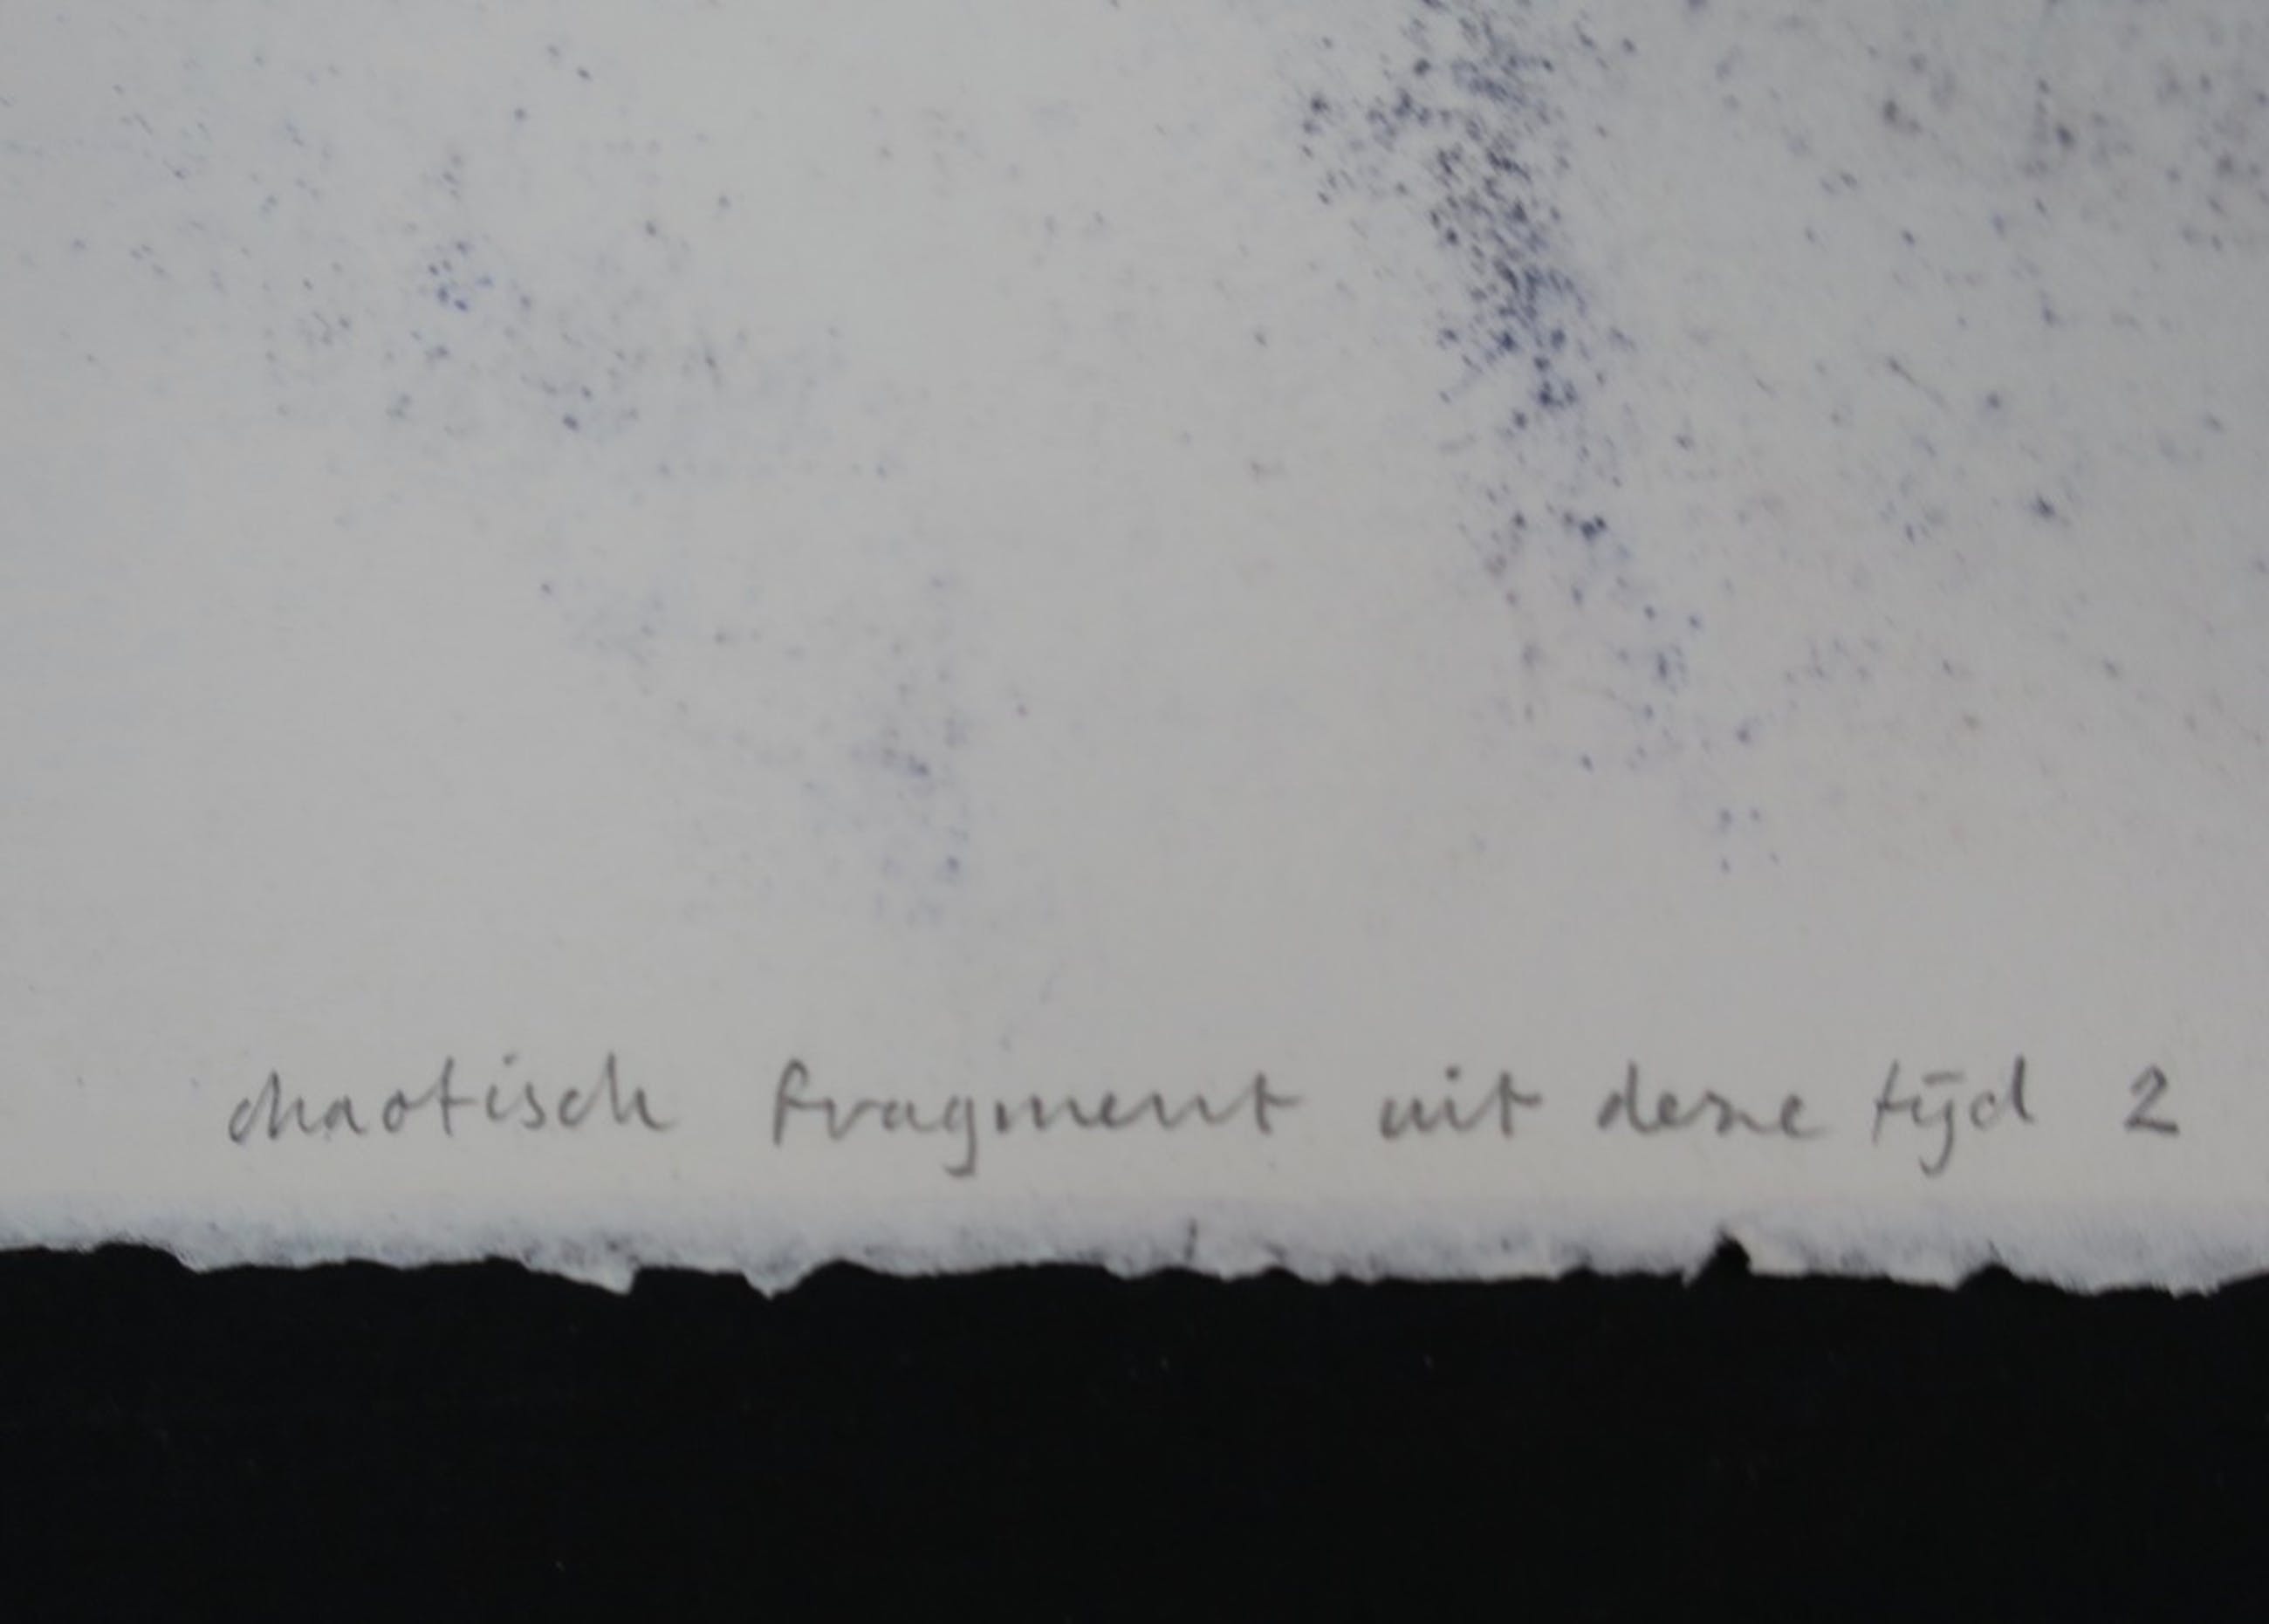 chaotisch fragment uit deze tijd 2